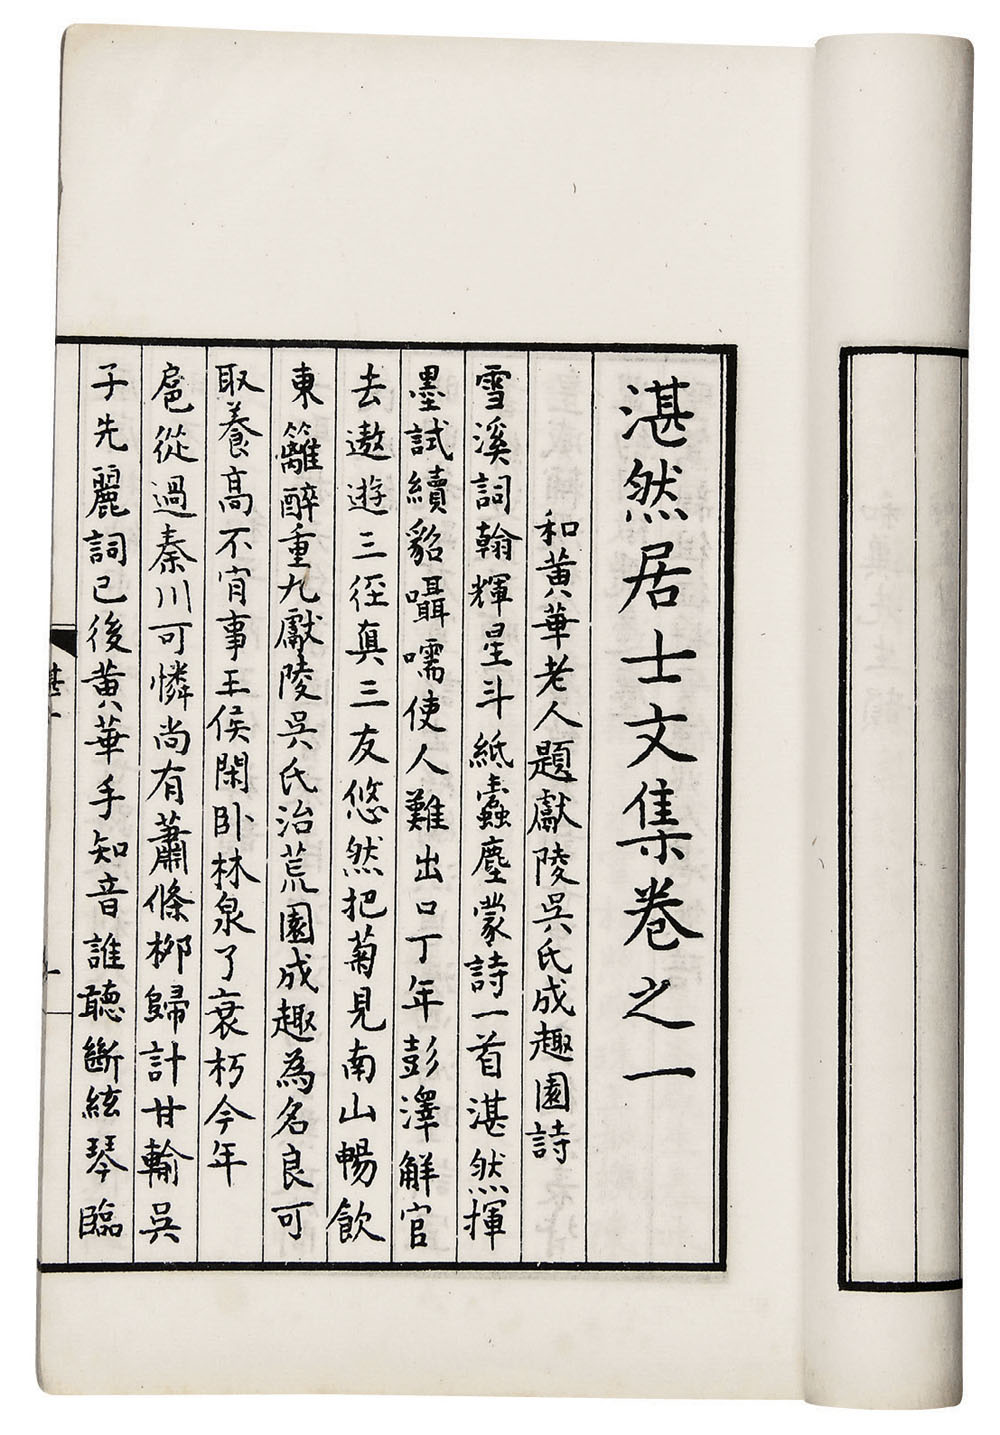 湛然居士文集卷之一
和黃華老人題獻陵吳氏成趣園詩
雪溪詞翰輝星斗紙蠹塵蒙詩一首湛然揮
墨試續貂囁嚅使人難出口丁年彭澤解官
去遨遊三徑真三友悠然把菊見南山暢飲
東籬醉重九獻陵吳氏治荒園成趣為名良可
取養高不肯事王侯閑臥林泉了衰朽今年
扈從過秦川可憐尚有蕭條栁歸計甘輸吳
子先麗詞已後黃華手知音誰聽斷絃琴臨